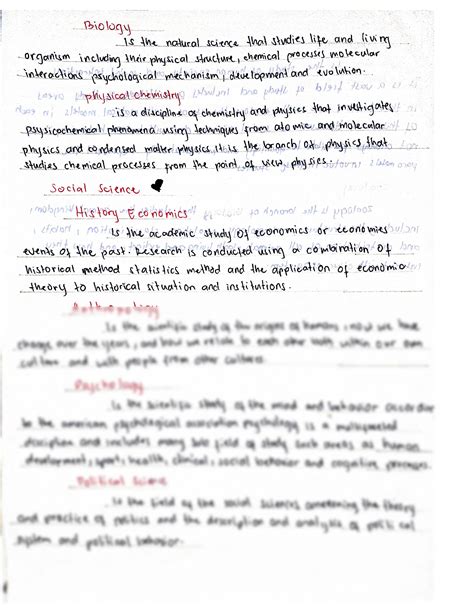 Biology
Is the natural science that studies life and living
organism including their physical structure, chemical processes molecular
interactions psychological mechanism, development and evolution.
physical chemistry
is a discipline of chemistry and physics that investigates
psysicochemical phenomena using techniques from atomic and molecular
physics and condensed matter physics it is the branch of physics that
studies chemical processes from the point of view physics.
Social Science
History Economics
Is the academic study of economics or economies
events of the past. Research is conducted using a combination of
historical method statistics method and the application of economic
theory to historical situation and institutions.
Anthropology
Is the scientific study of the origins of humans, how we have
change over the years, and how we relate to each other both within our own
culture and with people from other cultures.
Psychology
Is the scientific study of the mind and behavior
to the american psychological association psychology is a
discipline and includes many sub field of study such areas as human
development, sport, health, clinical, social behavior and cognitive processes.
Political Science
Is the field of the social sciences concerning the theory
and practice of politics and the description and analysis of political
system and political behavior.